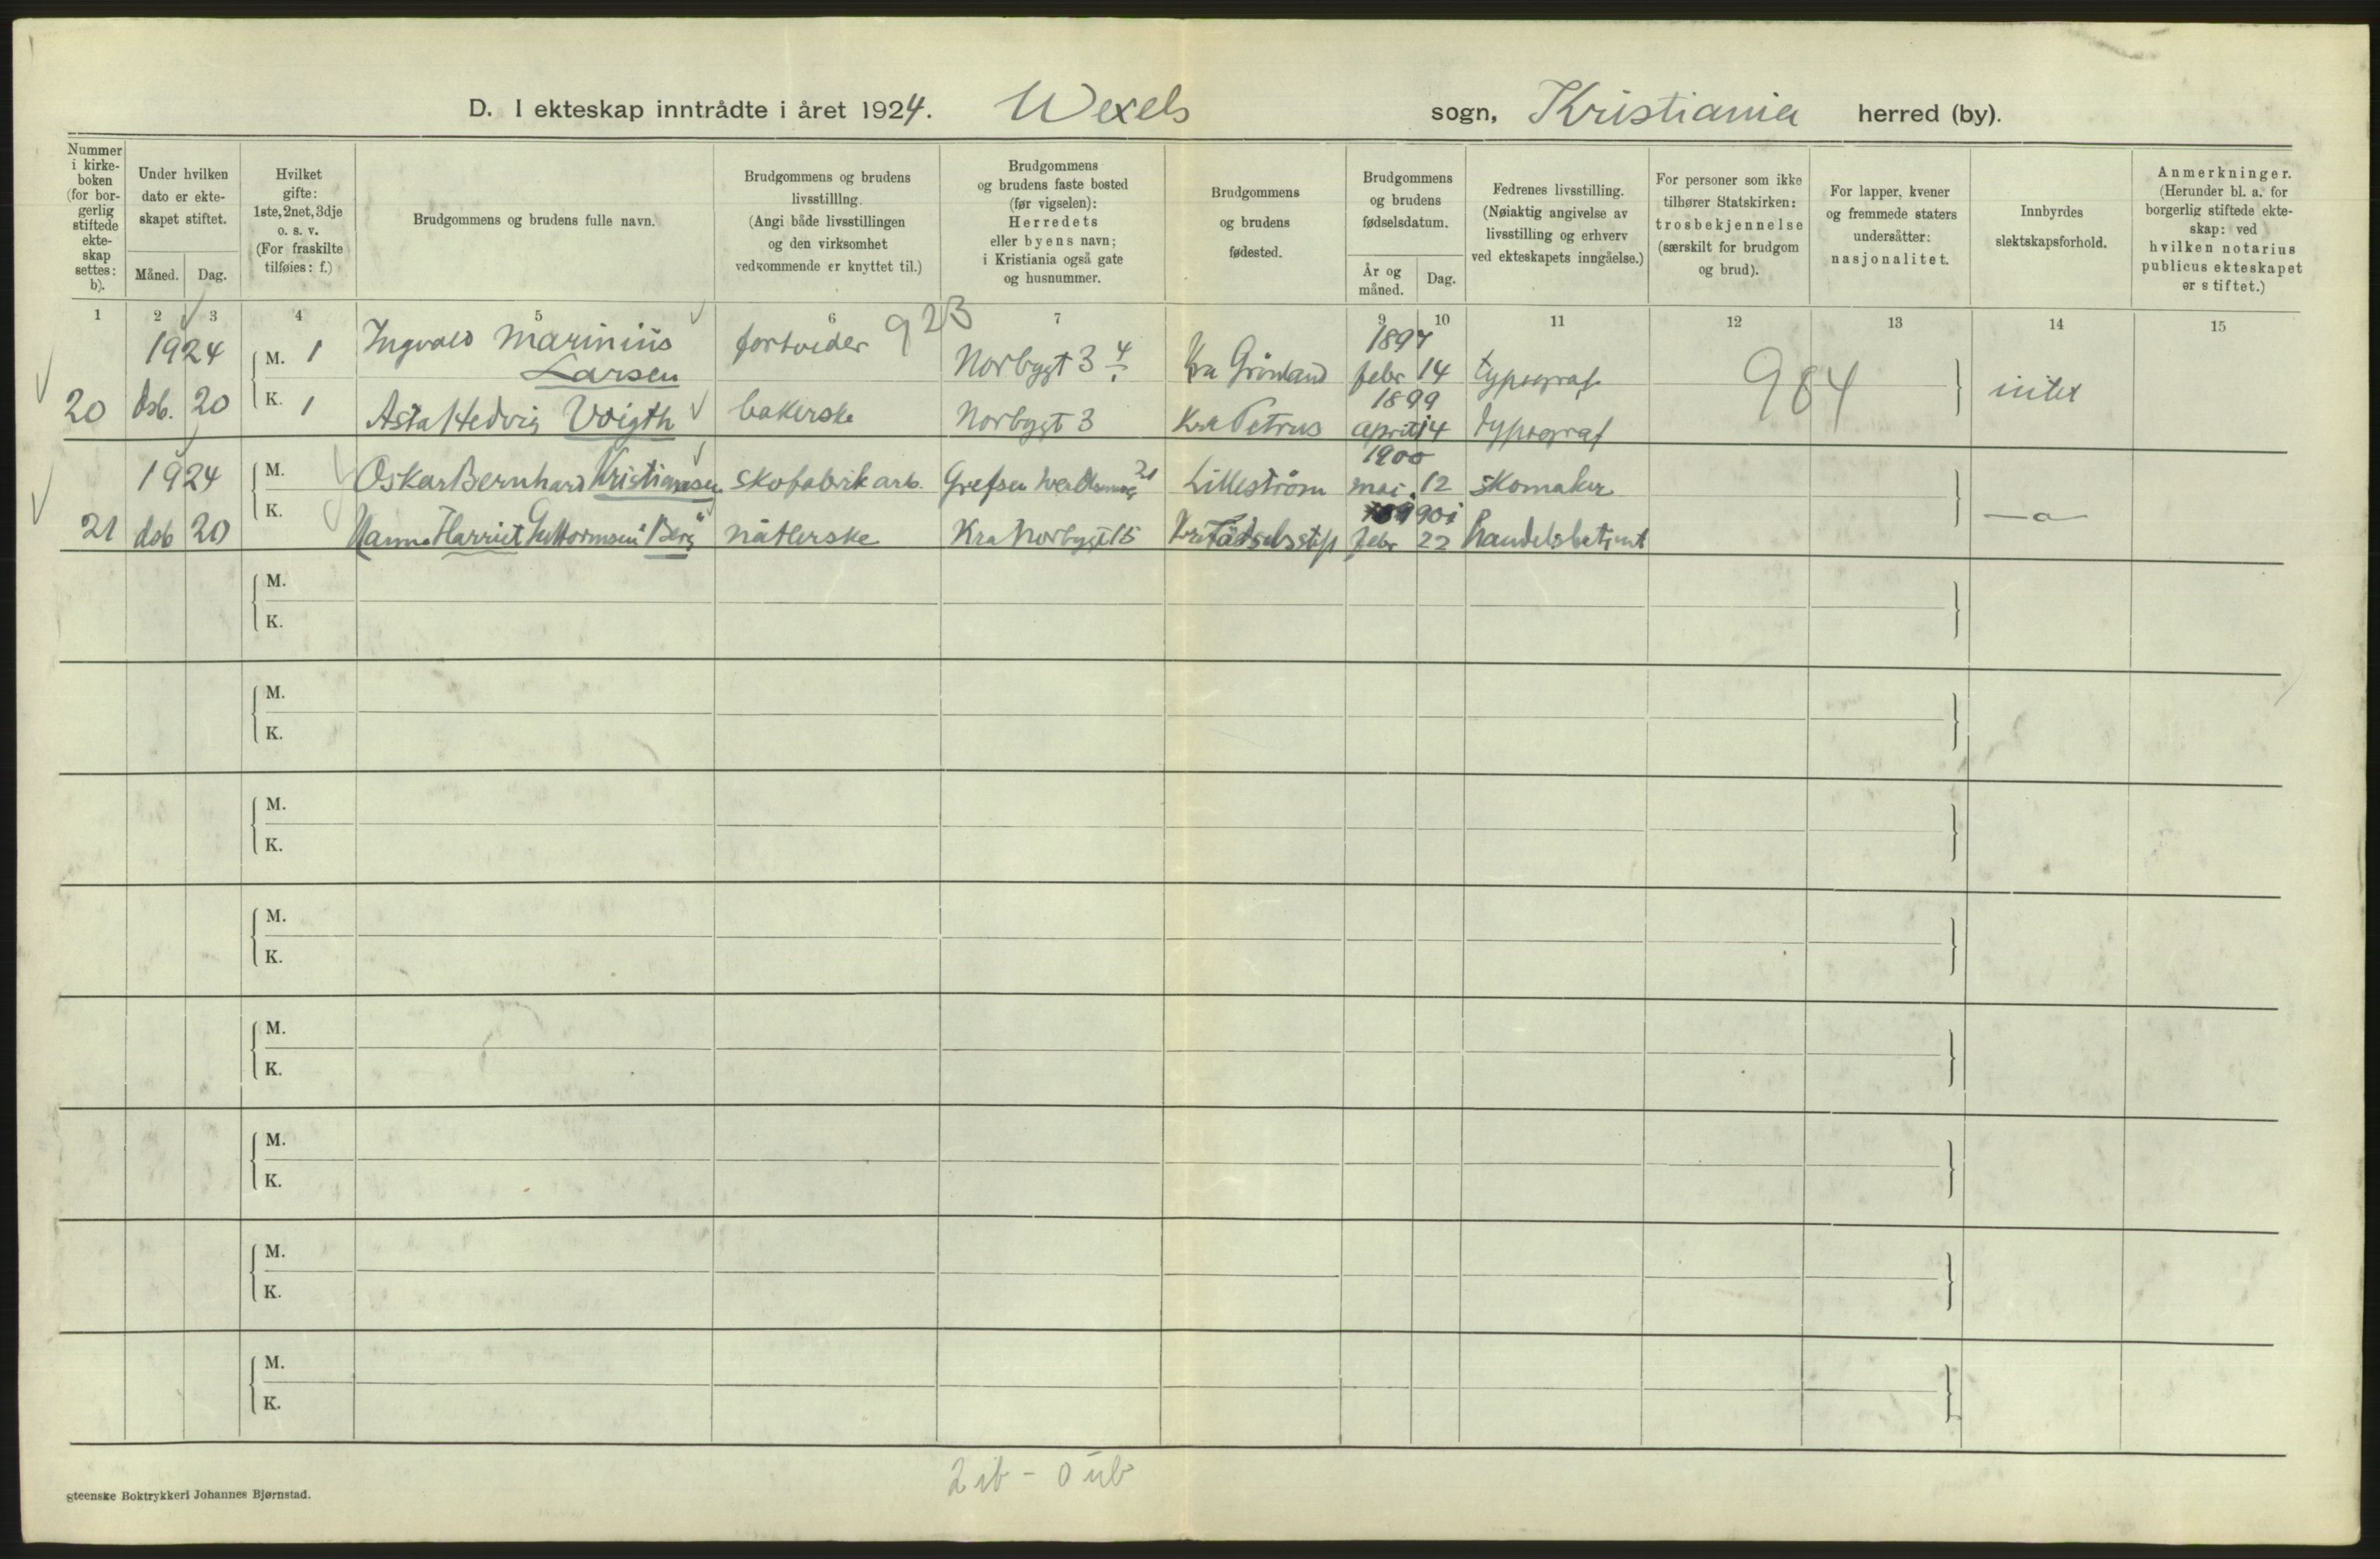 D. I ekteskap inntrådte i året 1924. Wexels sogn, Kristiania herred (by).
Nummer i kirke-boken (for bor-gerlig stiftede ekte-skap settes: b).
Under hvilken dato er ekte-skapet stiftet.
Måned. Dag.
Hvilket gifte: 1ste, 2net, 3dje o. s. v. (For fraskilte tilføies: f.)
Brudgommens og brudens fulle navn.
Brudgommens og brudens livsstilllng. (Angi både livsstillingen og den virksomhet vedkommende er knyttet til.)
Brudgommens og brudens faste bosted (før vigselen): Herredets eller byens navn; i Kristiania også gate og husnummer.
Brudgommens og brudens fødested.
Brudgommens og brudens fødselsdatum.
År og måned. Dag.
Fedrenes livsstilling. (Nøiaktig angivelse av livsstilling og erhverv ved ekteskapets inngåelse.)
For personer som ikke tilhører Statskirken: trosbekjennelse (særskilt for brudgom og brud).
For lapper, kvener og fremmede staters undersåtter: nasjonalitet.
Innbyrdes slektskapsforhold.
Anmerkninger. (Herunder bl. a. for borgerlig stiftede ekte-skap: ved hvilken notarius publicus ekteskapet er stiftet.)
1 2 3 4 5 6 7 9 10 11 12 13 14 15
923
1924 M. 1 Ingvald Marinius Larsen Norbygt 3 4 Kra Grönland 1897 febr 14 typograf 984 intet
20 dsb. 20 K. 1 Asta Hedvig Voigth bakerske Norbygt 3 Kra Petrus 1899 april 14 typograf
1924 M. Oskar Bernhard Kristiansen skofabrik arb. Grefsen 21 Lilleström 1900 mai 12 skomaker
21 dsb 20 K. Hanna Harriet Guttormsen "Berg" nåtlerske Kra Norbygt 15 1901 febr 22 handelsbetjent — a —
M.
K.
M.
K.
M.
K.
M.
K.
M.
K.
M.
K.
M.
K.
M.
K.
2 ib - 0 uib
steenske Boktrykkeri Johannes Bjørnstad.